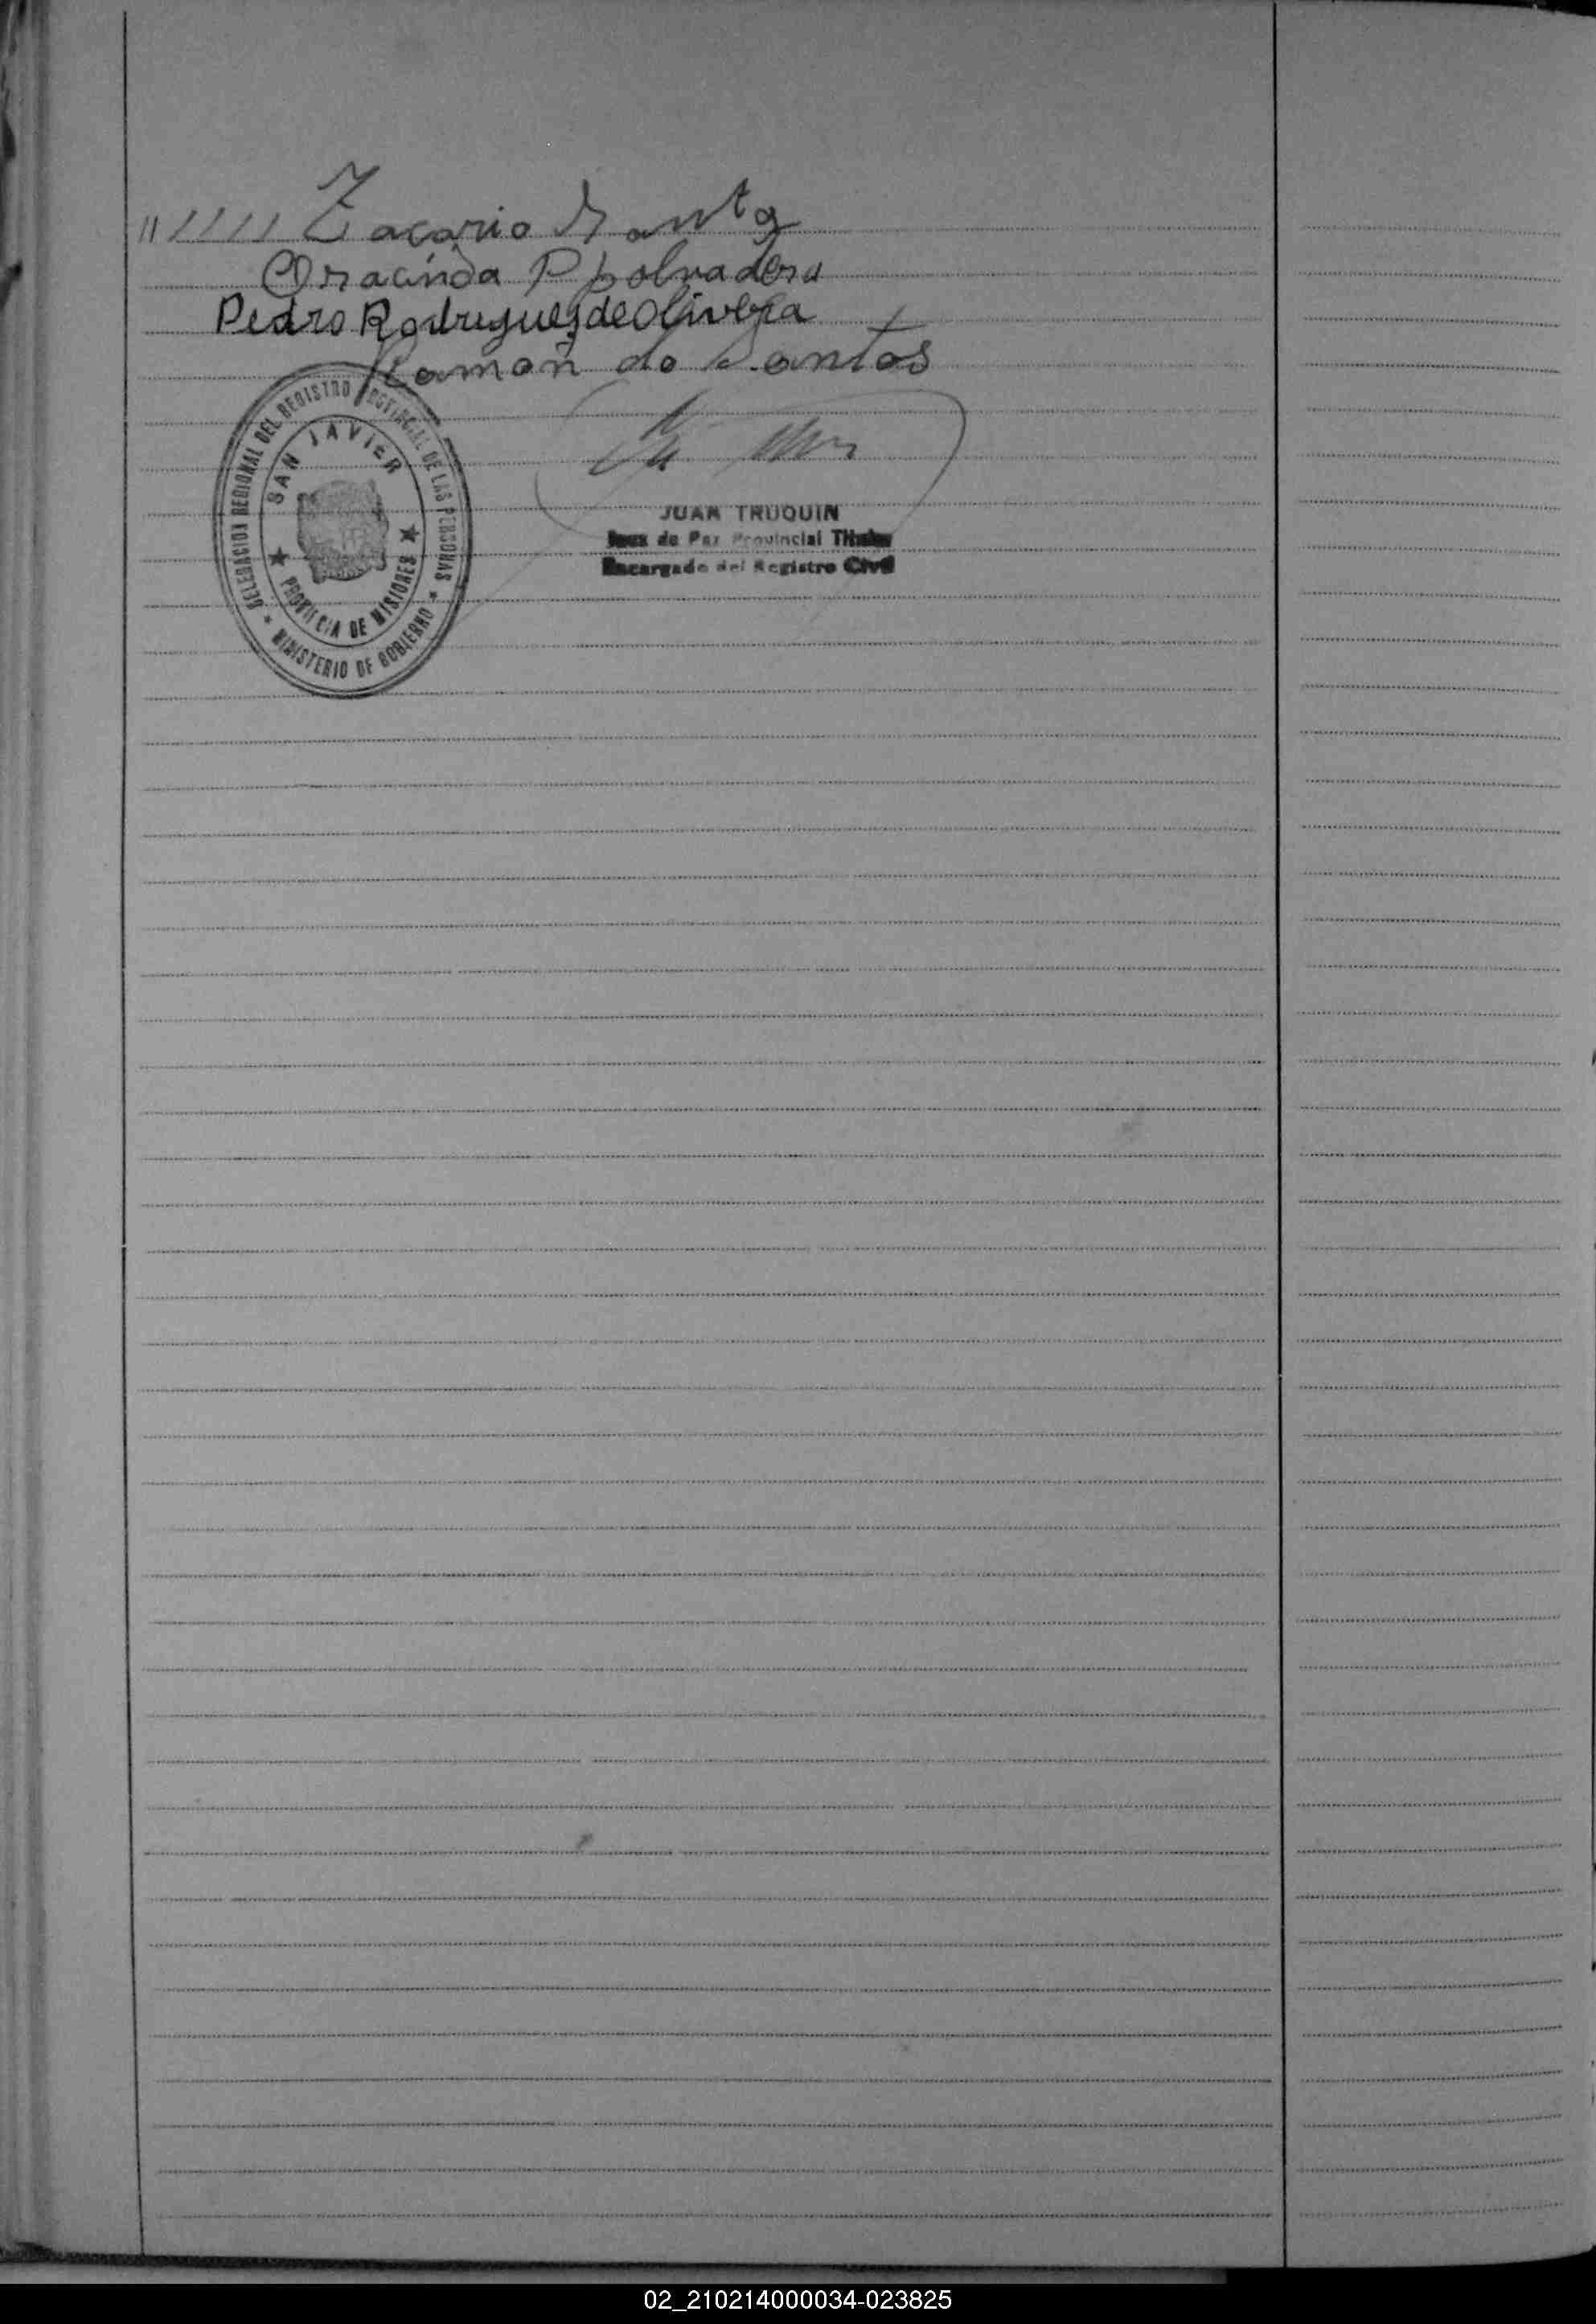 Zacario Santo
Oracinda P polvadera
Pedro Rodriguez de Olivera
Ramoñ do Santos
DELEGACION REGIONAL DEL REGISTRO PROVINCIAL DE LAS PERSONAS
SAN JAVIER
PROVINCIA DE MISIONES
MINISTERIO DE GOBIERNO
JUAN TRUQUIN
Juez de Paz Provincial Titular
Encargado del Registro Civil
02_210214000034-023825